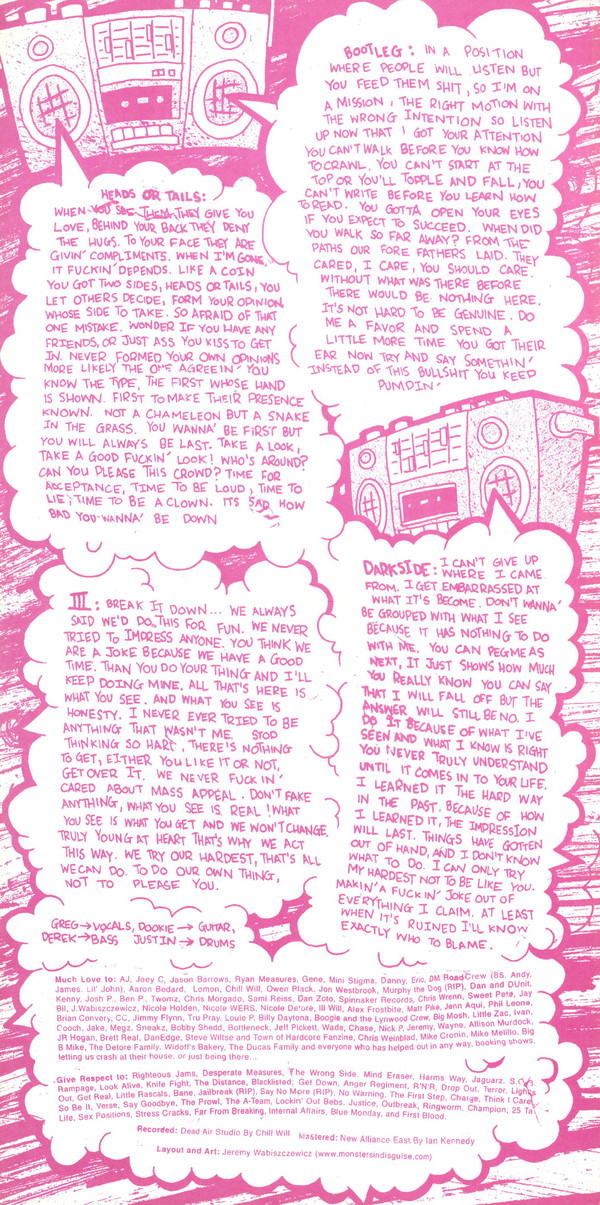 BOOTLEG: IN A POSITION
WHERE PEOPLE WILL LISTEN BUT
YOU FEED THEM SHIT, SO I'M ON
A MISSION, THE RIGHT MOTION WITH
THE WRONG INTENTION SO LISTEN
UP NOW THAT I GOT YOUR ATTENTION
YOU CAN'T WALK BEFORE YOU KNOW HOW
TO CRAWL. YOU CAN'T START AT THE
TOP OR YOU'LL TOPPLE AND FALL, YOU
CAN'T WRITE BEFORE YOU LEARN HOW
TO READ. YOU GOTTA OPEN YOUR EYES
IF YOU EXPECT TO SUCCEED. WHEN DID
YOU WALK SO FAR AWAY? FROM THE
PATHS OUR FORE FATHERS LAID. THEY
CARED, I CARE, YOU SHOULD CARE.
WITHOUT WHAT WAS THERE BEFORE
THERE WOULD BE NOTHING HERE.
IT'S NOT HARD TO BE GENUINE. DO
ME A FAVOR AND SPEND A
LITTLE MORE TIME YOU GOT THEIR
EAR NOW TRY AND SAY SOMETHIN'
INSTEAD OF THIS BULLSHIT YOU KEEP
PUMPIN'
HEADS OR TAILS:
WHEN YOU SEE THEM THEY GIVE YOU
LOVE, BEHIND YOUR BACK THEY DENY
THE HUGS. TO YOUR FACE THEY ARE
GIVIN' COMPLIMENTS. WHEN I'M GONE,
IT FUCKIN' DEPENDS. LIKE A COIN
YOU GOT TWO SIDES, HEADS OR TAILS, YOU
LET OTHERS DECIDE, FORM YOUR OPINION,
WHOSE SIDE TO TAKE. SO AFRAID OF THAT
ONE MISTAKE. WONDER IF YOU HAVE ANY
FRIENDS, OR JUST ASS YOU KISS TO GET
IN. NEVER FORMED YOUR OWN OPINIONS
MORE LIKELY THE ONE AGREEIN' YOU
KNOW THE TYPE, THE FIRST WHOSE HAND
IS SHOWN. FIRST TO MAKE THEIR PRESENCE
KNOWN. NOT A CHAMELEON BUT A SNAKE
IN THE GRASS. YOU WANNA' BE FIRST BUT
YOU WILL ALWAYS BE LAST. TAKE A LOOK,
TAKE A GOOD FUCKIN' LOOK! WHO'S AROUND?
CAN YOU PLEASE THIS CROWD? TIME FOR
ACCEPTANCE, TIME TO BE LOUD, TIME TO
LIE, TIME TO BE A CLOWN. ITS SAD HOW
BAD YOU WANNA' BE DOWN
DARKSIDE: I CAN'T GIVE UP
WHERE I CAME
FROM. I GET EMBARRASSED AT
WHAT IT'S BECOME. DON'T WANNA'
BE GROUPED WITH WHAT I SEE
BECAUSE IT HAS NOTHING TO DO
WITH ME. YOU CAN PEG ME AS
NEXT, IT JUST SHOWS HOW MUCH
YOU REALLY KNOW YOU CAN SAY
THAT I WILL FALL OFF BUT THE
ANSWER WILL STILL BE NO. I
DO IT BECAUSE OF WHAT I'VE
SEEN AND WHAT I KNOW IS RIGHT
YOU NEVER TRULY UNDERSTAND
UNTIL IT COMES IN TO YOUR LIFE.
I LEARNED IT THE HARD WAY
IN THE PAST. BECAUSE OF HOW
I LEARNED IT, THE IMPRESSION
WILL LAST. THINGS HAVE GOTTEN
OUT OF HAND, AND I DON'T KNOW
WHAT TO DO. I CAN ONLY TRY
MY HARDEST NOT TO BE LIKE YOU.
MAKIN' A FUCKIN' JOKE OUT OF
EVERYTHING I CLAIM. AT LEAST
WHEN IT'S RUINED I'LL KNOW
EXACTLY WHO TO BLAME.
III: BREAK IT DOWN... WE ALWAYS
SAID WE'D DO THIS FOR FUN. WE NEVER
TRIED TO IMPRESS ANYONE. YOU THINK WE
ARE A JOKE BECAUSE WE HAVE A GOOD
TIME. THAN YOU DO YOUR THING AND I'LL
KEEP DOING MINE. ALL THAT'S HERE IS
WHAT YOU SEE. AND WHAT YOU SEE IS
HONESTY. I NEVER EVER TRIED TO BE
ANYTHING THAT WASN'T ME. STOP
THINKING SO HARD, THERE'S NOTHING
TO GET, EITHER YOU LIKE IT OR NOT,
GET OVER IT. WE NEVER FUCKIN'
CARED ABOUT MASS APPEAL. DON'T FAKE
ANYTHING, WHAT YOU SEE IS REAL! WHAT
YOU SEE IS WHAT YOU GET AND WE WON'T CHANGE.
TRULY YOUNG AT HEART THAT'S WHY WE ACT
THIS WAY. WE TRY OUR HARDEST, THAT'S ALL
WE CAN DO. TO DO OUR OWN THING,
NOT TO PLEASE YOU.
GREG→VOCALS, DOOKIE→GUITAR,
DEREK→BASS JUSTIN→DRUMS
Much Love to: AJ, Joey C, Jason Barrows, Ryan Measures, Gene, Mini Stigma, Danny, Eric, DM Road Crew (8S, Andy,
James. Lil' John), Aaron Bedard, Lomon, Chill Will, Owen Plack, Jon Westbrook, Murphy the Dog (RIP), Dan and DUnit.
Kenny, Josh P., Ben P., Twomz, Chris Morgado, Sami Reiss, Dan Zoto, Spinnaker Records, Chris Wrenn, Sweet Pete, Jay
Bil, J.Wabiszczewicz, Nicole Holden, Nicole WERS, Nicole Detore, Ill Will, Alex Frostbite, Matt Pike, Jenn Aqui, Phil Leone,
Brian Convery, CC, Jimmy Flynn, Tru Pray, Louie P, Billy Daytona, Boogie and the Lynwood Crew, Big Mosh, Little Zac, Ivan,
Cooch, Jake, Megz, Sneakz, Bobby Shedd, Bottleneck, Jeff Pickett, Wade, Chase, Nick P, Jeremy, Wayne, Allison Murdock,
JR Hogan, Brett Real, DanEdge, Steve Wiltse and Town of Hardcore Fanzine, Chris Weinblad, Mike Cronin, Mike Melillo, Big
B Mike, The Detore Family, Widoff's Bakery, The Ducas Family and everyone who has helped out in any way, booking shows,
letting us crash at their house, or just being there...
Give Respect to: Righteous Jams, Desperate Measures, The Wrong Side. Mind Eraser, Harms Way, Jaguarz. S.O.V.
Rampage, Look Alive, Knife Fight, The Distance, Blacklisted, Get Down, Anger Regiment, R'N'R, Drop Out, Terror, Lights
Out, Get Real, Little Rascals, Bane, Jailbreak (RIP), Say No More (RIP), No Warning, The First Step, Charge, Think I Care,
So Be It, Verse, Say Goodbye, The Prowl, The A-Team, Lockin' Out Bebs. Justice, Outbreak, Ringworm, Champion, 25 Ta
Life, Sex Positions, Stress Cracks, Far From Breaking, Internal Affairs, Blue Monday, and First Blood.
Recorded: Dead Air Studio By Chill Will Mastered: New Alliance East By Ian Kennedy
Layout and Art: Jeremy Wabiszczewicz (www.monstersindisguise.com)